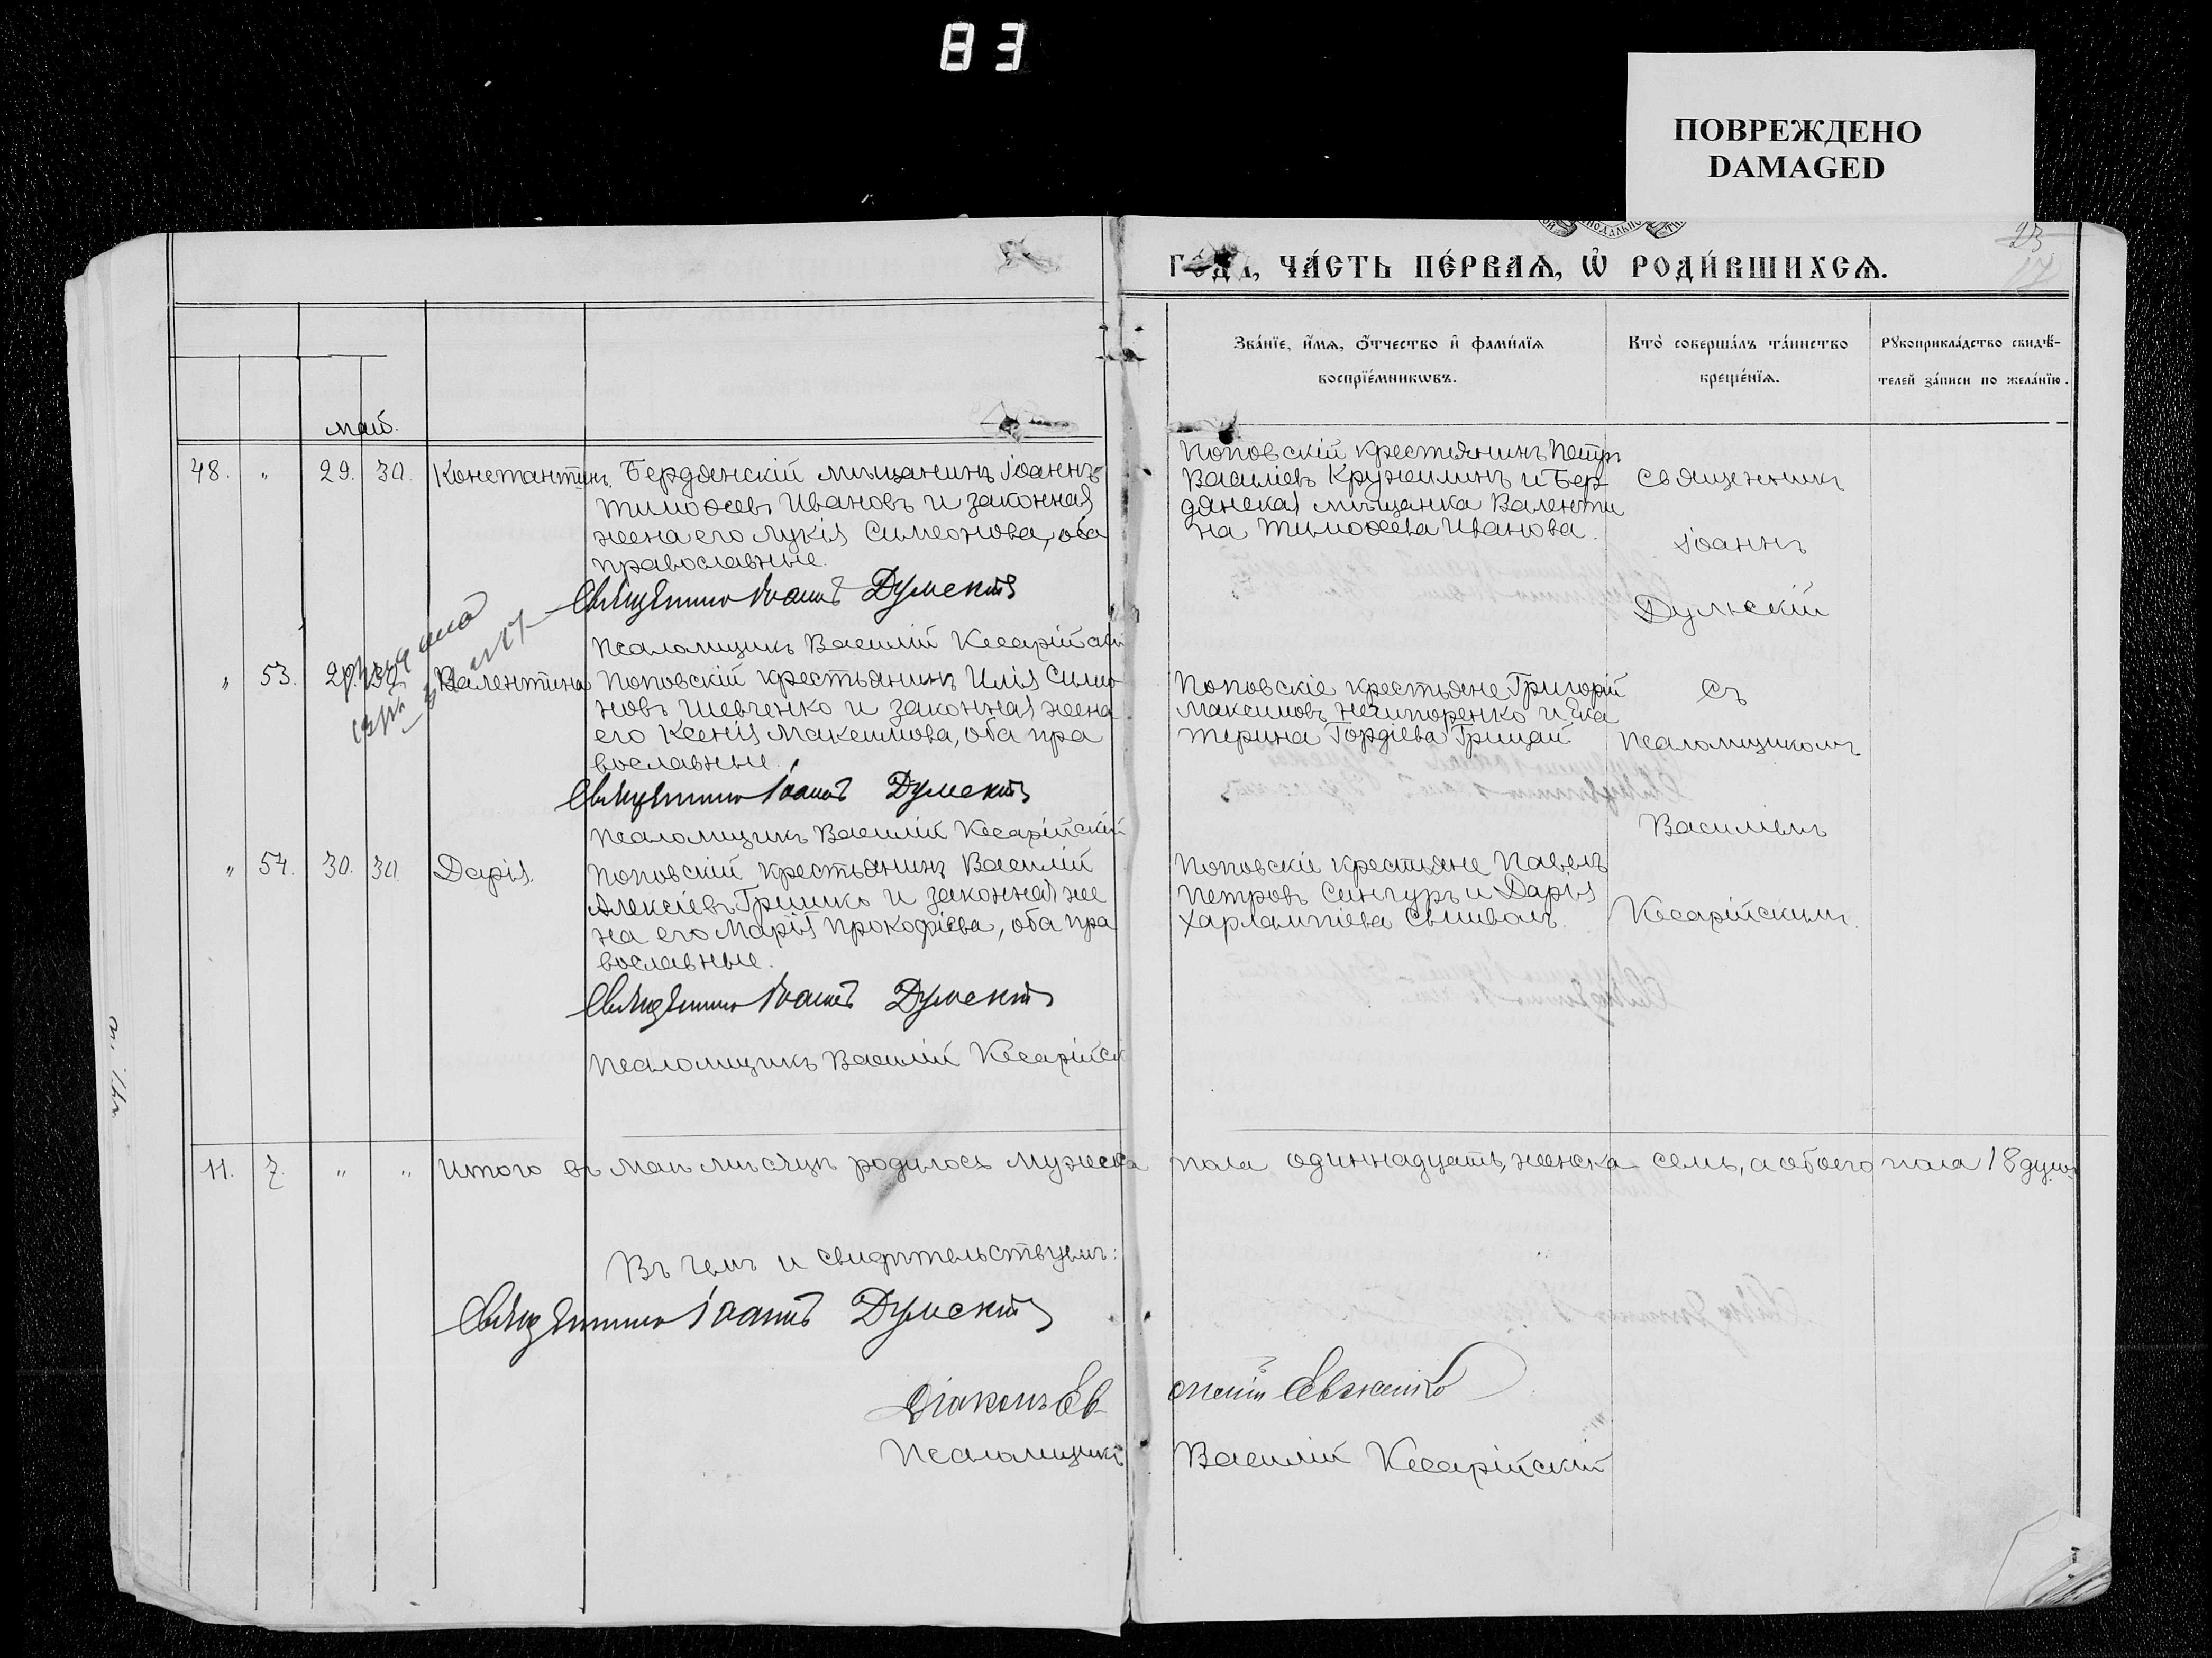 83
ПОВРЕЖДЕНО
DAMAGED
23
17
ГО́ДА, ЧА́СТЬ ПЕ́РВАѦ, Ѡ҆ РОДИ́ВШИХСѦ.
Зва́нїе, и҆́мѧ, ѻ҆́тчество и҆ фами́лїѧ
воспрїе́мникѡвъ.
Кто̀ соверша́лъ та́инство
креще́нїѧ.
Рꙋкоприкла́дство свидѣ́-
телей за́писи по жела́нїю.
май.
48. " 29. 30. Константинъ. Бердянскій мѣщанинъ Іоаннъ
Тимоѳеевъ Ивановъ и законная
жена его Лукія Симеонова, оба
православные.
Священникъ Іоаннъ Дульскій
Псаломщикъ Василій Кесарійскій
Поповскій крестьянинъ Петръ
Василіевъ Кружилинъ и Бер-
дянская мѣщанка Валенти
на Тимоѳеева Иванова.
Священникъ
Іоаннъ
Дульскій
" 53. 29. 30. Валентина Поповскій крестьянинъ Илія Симо
новъ Шевченко и законная жена
его Ксенія Максимова, оба пра
вославные.
Священникъ Іоаннъ Дульскій
Псаломщикъ Василій Кесарійскій
Поповскіе крестьяне Григорій
Максимовъ Нечипоренко и Ека
терина Гордіева Грицай
Съ
Псаломщикомъ
Василіемъ
" 54. 30. 30. Дарія. Поповскій крестьянинъ Василій
Алексіевъ Гришко и законная же
на его Марія Прокофіева, оба пра
вославные.
Священникъ Іоаннъ Дульскій
Псаломщикъ Василій Кесарійск
Поповскіе крестьяне Павелъ
Петровъ Сингуръ и Дарія
Харлампіева
Кесарійскимъ.
11. 7. " " Итого въ маѣ мѣсяцѣ родилось мужеска пола одиннадцать, женска семь, а обоего пола 18 душъ
Въ чемъ и свидѣтельствуемъ:
Священникъ Іоаннъ Дульскій
Діаконъ Ев
Псаломщикъ Василій Кесарійскій